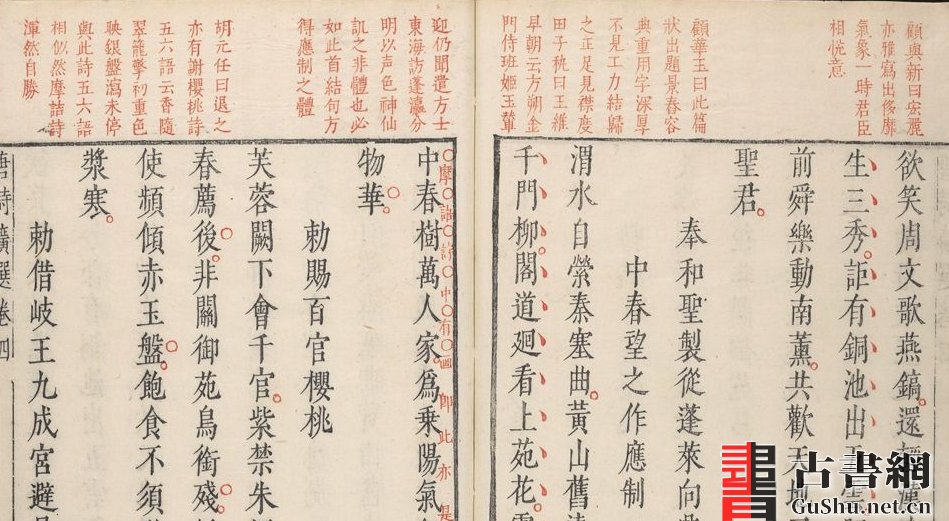 顧與新曰宏麗
亦雅寫出侈靡
氣象一時君臣
相悦意
顧華玉曰此篇
狀出題景春容
典重用字深厚
不見工力結歸
之正足見襟度
田子秇曰王維
早朝云方朔金
門侍班姬玉輦
欲笑周文歌燕鎬。還輕漢
生三秀。詎有銅池出
前舜樂動南薰。共歡天
聖君。
奉和聖製從蓬萊向
中春望之作應制
渭水自縈秦塞曲。黃山舊
千門柳。閣道廻看上苑花。
迎仍聞遣方士
東海訪蓬瀛分
明以声色神仙
訊之非體也必
如此首結句方
得應制之體
胡元任曰退之
亦有謝櫻桃詩
五六語云香隨
翠籠擎初重色
映銀盤瀉未停
與此詩五六語
相似然摩詰詩
渾然自勝
摩詰詩中有画即此亦是
中春樹萬人家。爲乘陽氣
物華。
勅賜百官櫻桃
芙蓉闕下會千官。紫禁朱
春薦後。非關御苑鳥銜殘。
使頻傾赤玉盤。飽食不須
漿寒。
勅借岐王九成宮避
唐詩廣選卷四
古書網
GuShu.net.cn